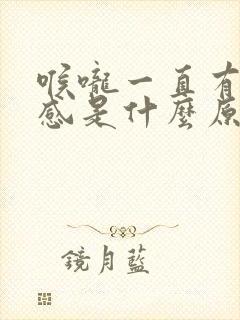 喉嚨一直有
感是什麼原
鏡月藍